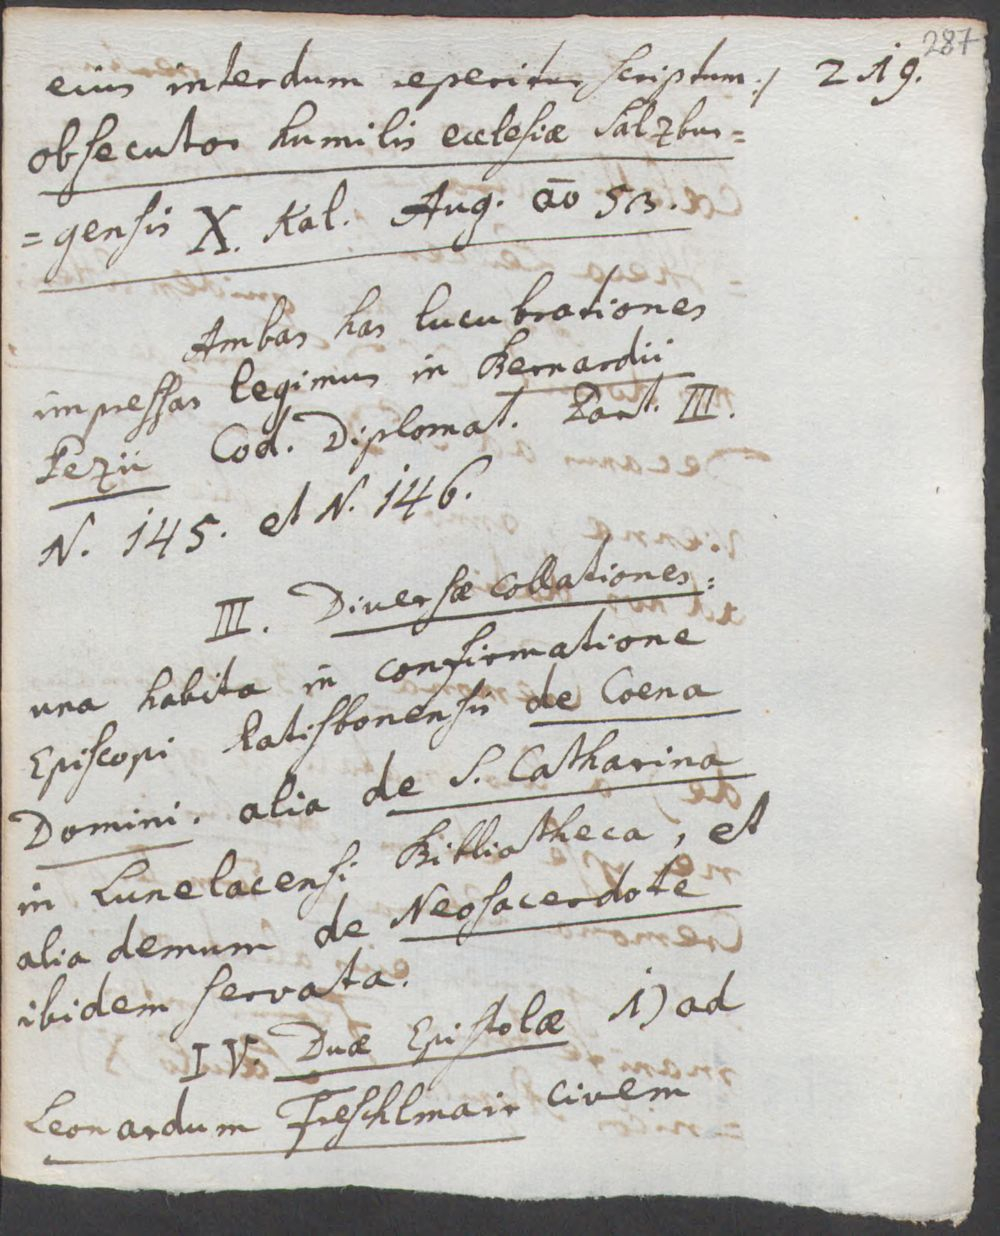 287
219.
eius interdum reperitur scriptum./
obsecutor humilis ecclesiæ Salzbur=
=gensis X. Kal. Aug. ao 53.
Ambas has lucubrationes
impressas legimus in Bernardii
Pezii Cod. Diplomat. Part. III.
N. 145. et N. 146.
III. Diversæ collationes:
una habita in confirmatione
Episcopi Ratisbonensis de Coena
Domini. alia de S. Catharina
in Lunelacensi Bibliotheca, et
alia demum de Neosacerdote
ibidem servata.
IV. Duæ Epistolæ 1) ad
Leonardum Freschlmair civem